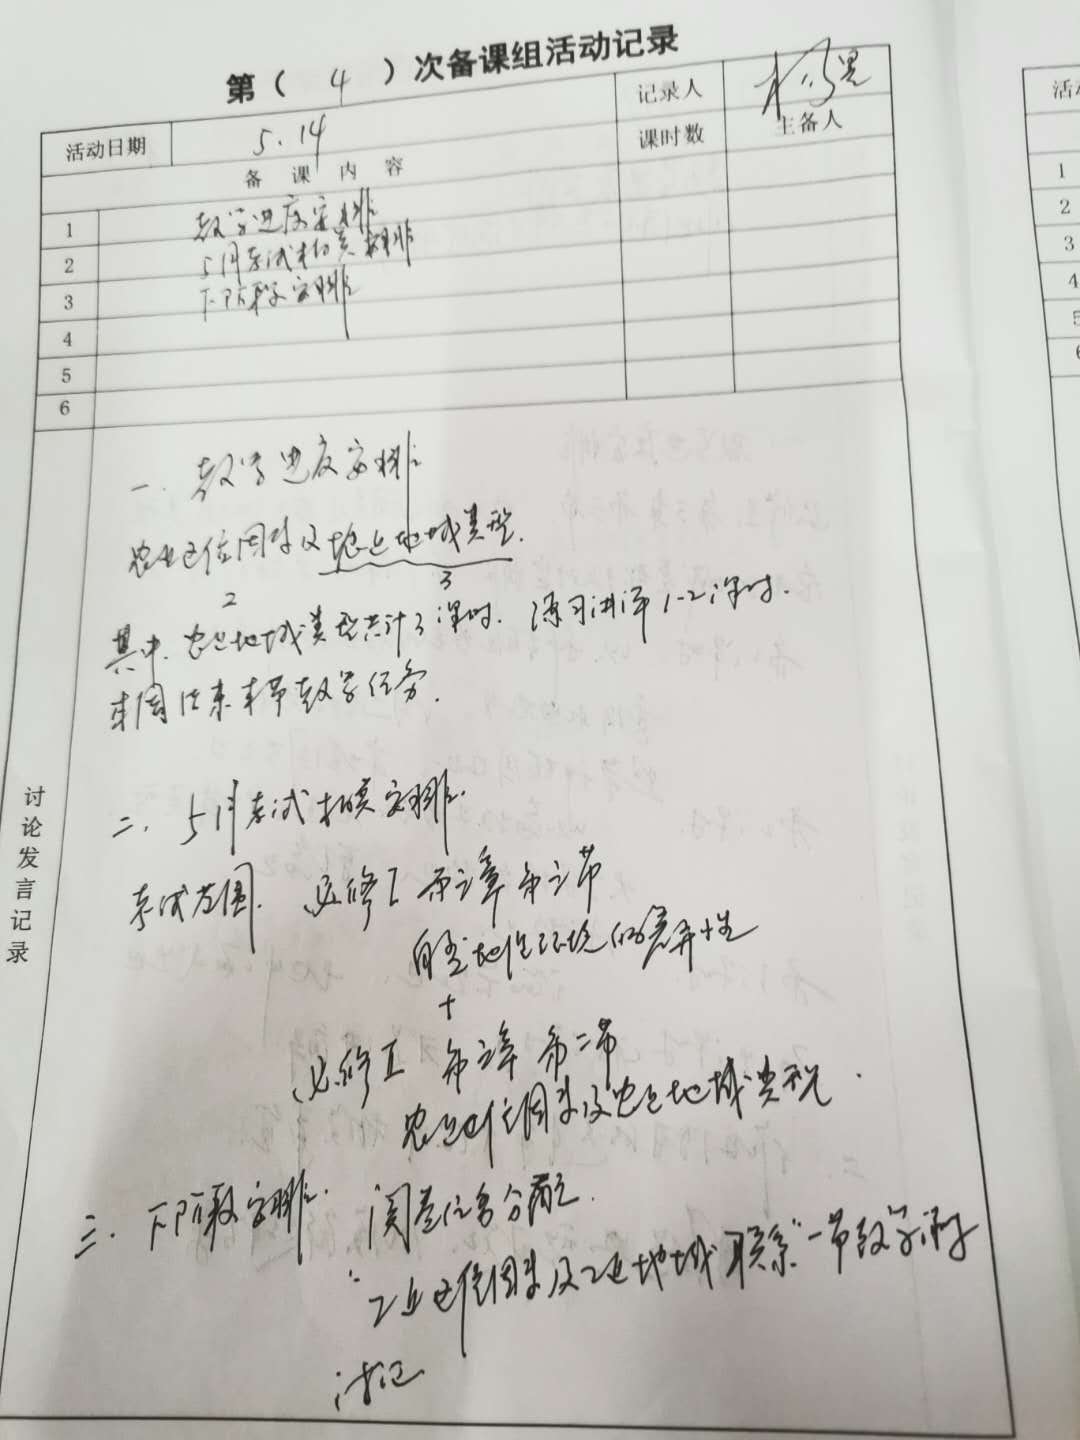 第（ 4 ）次备课组活动记录
活动日期 5.14 记录人
备课内容 课时数 主备人
1 教学进度安排
2 5月考试相关安排
3 下阶段安排
4
5
6
讨论发言记录
一. 教学进度安排
农业区位因素及农业地域类型.
2 3
其中. 农业地域类型共计3课时. 练习讲评1-2课时.
本周结束本节教学任务.
二. 5月考试相关安排.
考试范围. 必修I 第五章第二节
自然地理环境的差异性
+
必修II 第三章 第二节
农业区位因素及农业地域类型.
三. 下阶段安排. 阅卷任务分配.
"工业区位因素及工业地域联系"一节教学
讨论
活
1
2
3
4
5
6